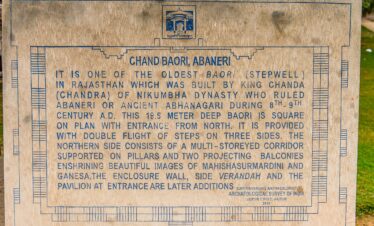 CHAND BAORI, ABANERI
IT IS ONE OF THE OLDEST BAORI (STEPWELL)
IN RAJASTHAN WHICH WAS BUILT BY KING CHANDA
(CHANDRA) OF NIKUMBHA DYNASTY WHO RULED
ABANERI OR ANCIENT ABHANAGARI DURING 8TH-9TH
CENTURY A.D. THIS 19.5 METER DEEP BAORI IS SQUARE
ON PLAN WITH ENTRANCE FROM NORTH. IT IS PROVIDED
WITH DOUBLE FLIGHT OF STEPS ON THREE SIDES. THE
NORTHERN SIDE CONSISTS OF A MULTI-STOREYED CORRIDOR
SUPPORTED ON PILLARS AND TWO PROJECTING BALCONIES
ENSHRINING BEAUTIFUL IMAGES OF MAHISHASURMARDINI AND
GANESA.THE ENCLOSURE WALL, SIDE VERANDAH AND THE
PAVILION AT ENTRANCE ARE LATER ADDITIONS
ARCHAEOLOGICAL SURVEY OF INDIA
JAIPUR CIRCLE, JAIPUR